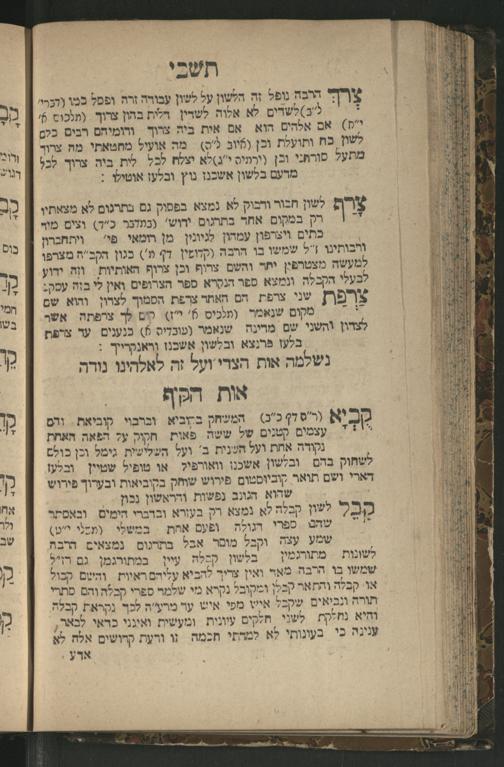 תשבי
צרך הרבה נופל זה הלשון על לשון עבודה זרה ופסל כמו (דברי'
ל"ב) לשדים לא אלוה לשדין דלית בהון צרוך (מלכים א'
י"ח) אם אלהים הוא אם אית ביה צרוך ודומיהם רבים כלם
לשון כח ותועלת וכן (איוב ל"ה) מה אועיל מחטאתי מה צרוך
מתעל סורחני וכן (ירמיה י"ג) לא יצלח לכל לית ביה צרוך לכל
מדעם בלשון אשכנז נוץ ובלעז אוטילו :
צרף לשון חבור ודבוק לא נמצא בפסוק גם בתרגום לא מצאתיו
רק במקום אחד בתרגום ירוש' (במדבר כ"ד) וצים מיד
כתים ויצרפון עמהון לגיונין מן רומאי פי' ויתחברון
ורבותינו ז"ל שמשו בו הרבה (קדושין דף מ') כגון הקב"ה מצרפו
למעשה מצטרפין יחד והשם צרוף וכן צרוף האותיות וזה ידוע
לבעלי הקבלה ונמצא ספר הנקרא ספר הצרופים ואין לי בזה עסק:
צרפת שני צרפת הם האחד צרפת הסמוך לצדון והוא שם
מקום שנאמר (מלכים א' י"ז) קום לך צרפתה אשר
לצדון והשני שם מדינה שנאמר (עובדיה א) כנענים עד צרפת
בלעז פרנצא ובלשון אשכנז וראנקרייך :
נשלמה אות הצדי ועל זה לאלהינו נודה
אות הקוף
קביא (ר"ס דף כ"ב) המשחק בקוביא וברבוי קוביאות והם
עצמים קטנים של ששה פאות חקוק על הפאה האחת
נקודה אחת ועל השנית ב' ועל השלישית גימל וכן כולם
לשחוק בהם ובלשון אשכנז וואורפיל או טופיל שטיין ובלעז
דארי ושם תואר קוביוסטוס פירוש שוחק בקוביאות ובערוך פירוש
שהוא הגונב נפשות והראשון נכון
קבל לשון קבלה לא נמצא רק בעזרא ובדברי הימים ובאסתר
שהם ספרי הגולה ופעם אחת במשלי (משלי י"ט)
שמע עצה וקבל מוסר אבל בתרגום נמצאים הרבה
לשונות מתורגמין בלשון קבלה עיין במתורגמן גם רז"ל
שמשו בו הרבה מאד ואין צריך להביא עליהם ראיות והשם קבול
או קבלה והתאר קבלן ומקובל נקרא מי שלמד ספרי קבלה והם סתרי
תורה ונביאים שקבל איש מפי איש עד מרע"ה לכך נקראת קבלה
והיא נחלקת לשני חלקים עיונית ומעשית ואינני כדאי לבאר
ענינה כי בעונותי לא למדתי חכמה זו ודעת קדושים אלה לא
אדע